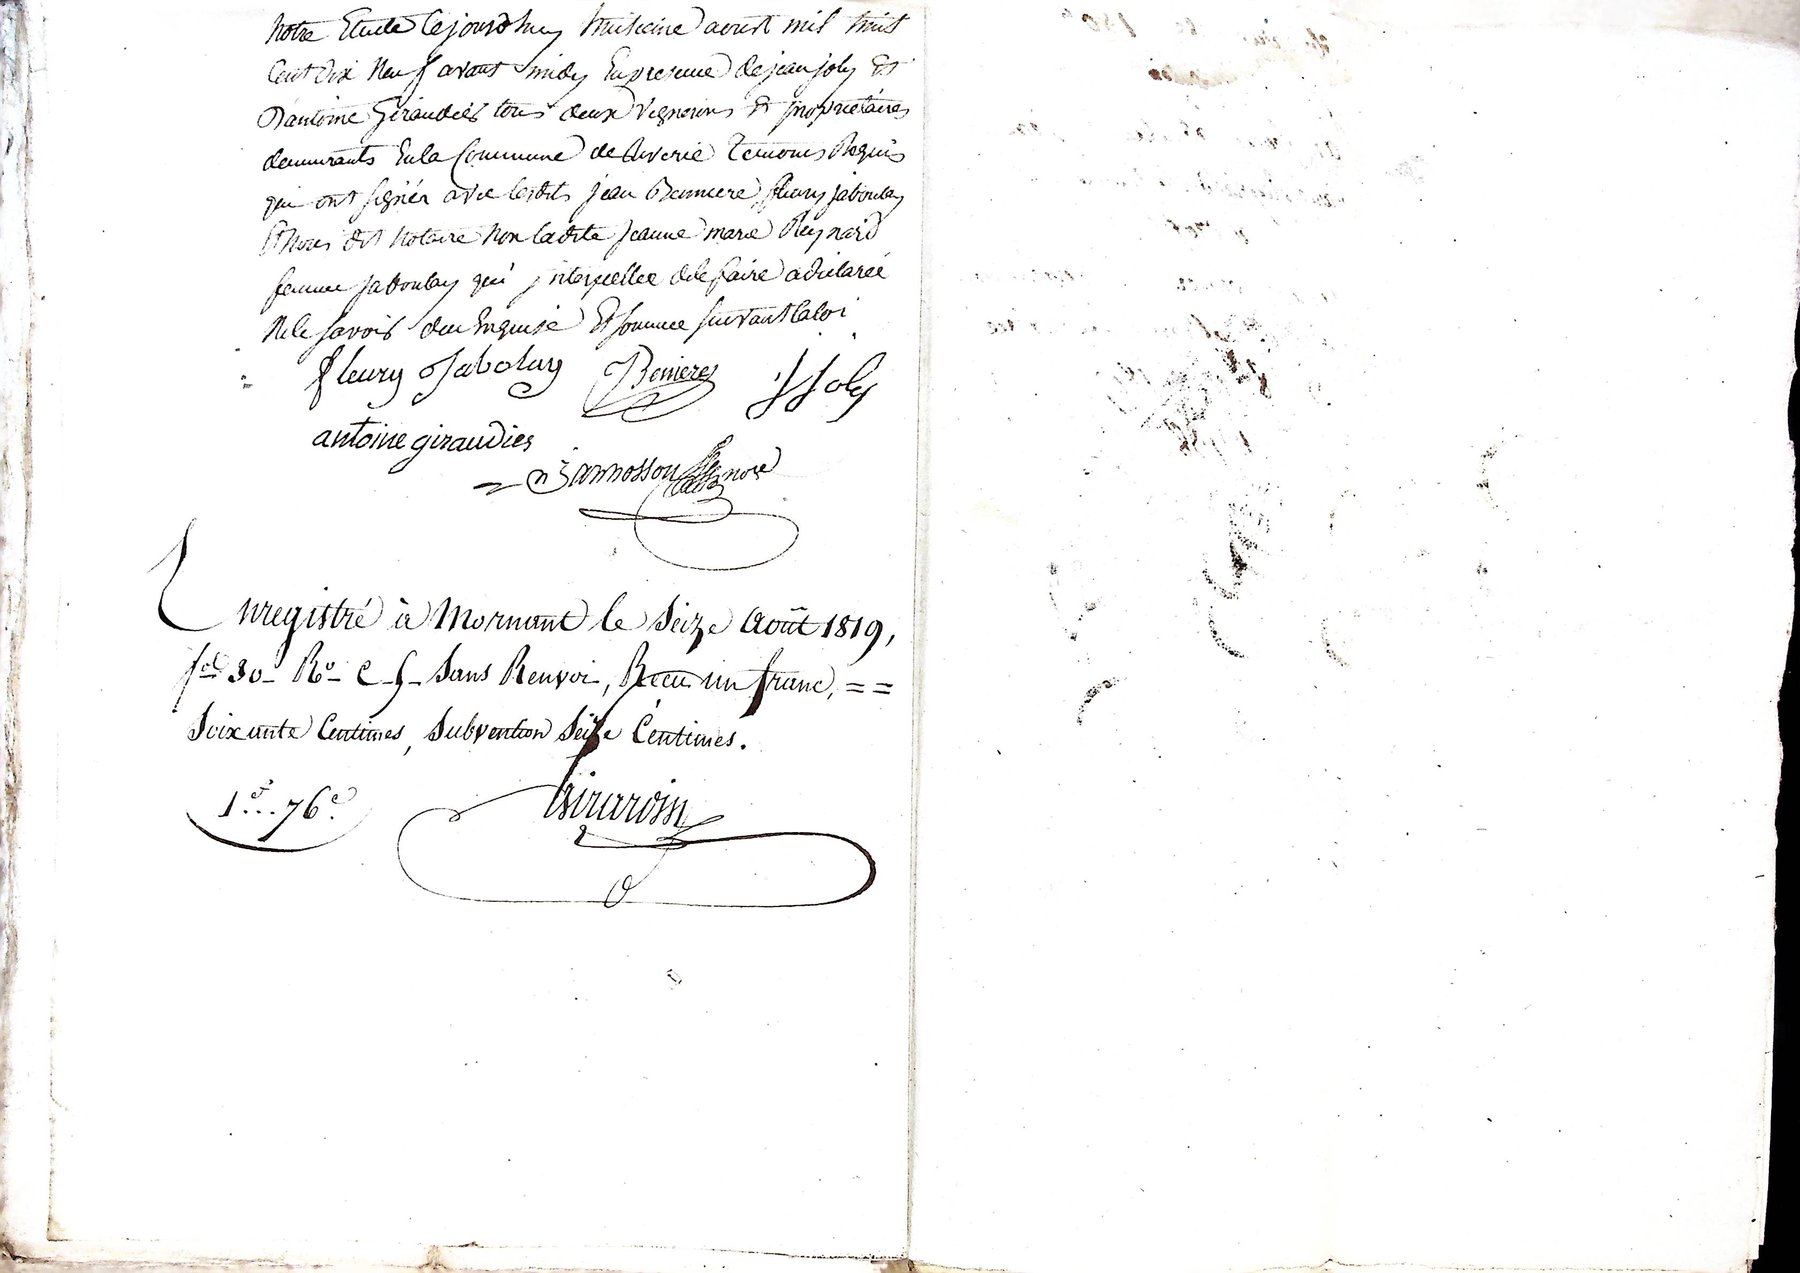 notre Etude Cejourdhuy huitieme aoust mil huit
Cent dix Neuf avant midy En presence de jean joly Et
D'antoine Giraudies tous deux vignerons Et proprietaires
demeurants En la Commune de Riverie Temoins Requis
qui ont signés avec lesdits jean Benniere, fleury jaboulay
Et Nous dit Notaire Non ladite jeanne marie Reynard
femme jaboulay qui interpellée de le faire a declareé
Ne le savoir deu Enquise Et sommee suivant la loi
fleury Jabolay Benieres J Joly
antoine giraudies
Bannosson Nore
Enregistré à Mornant le Seize Août 1819,
fol 80 Ro C 5 Sans Renvoi, Recu un franc, = =
Soixante Centimes, Subvention Seize Centimes.
1f...76c.
Girardin